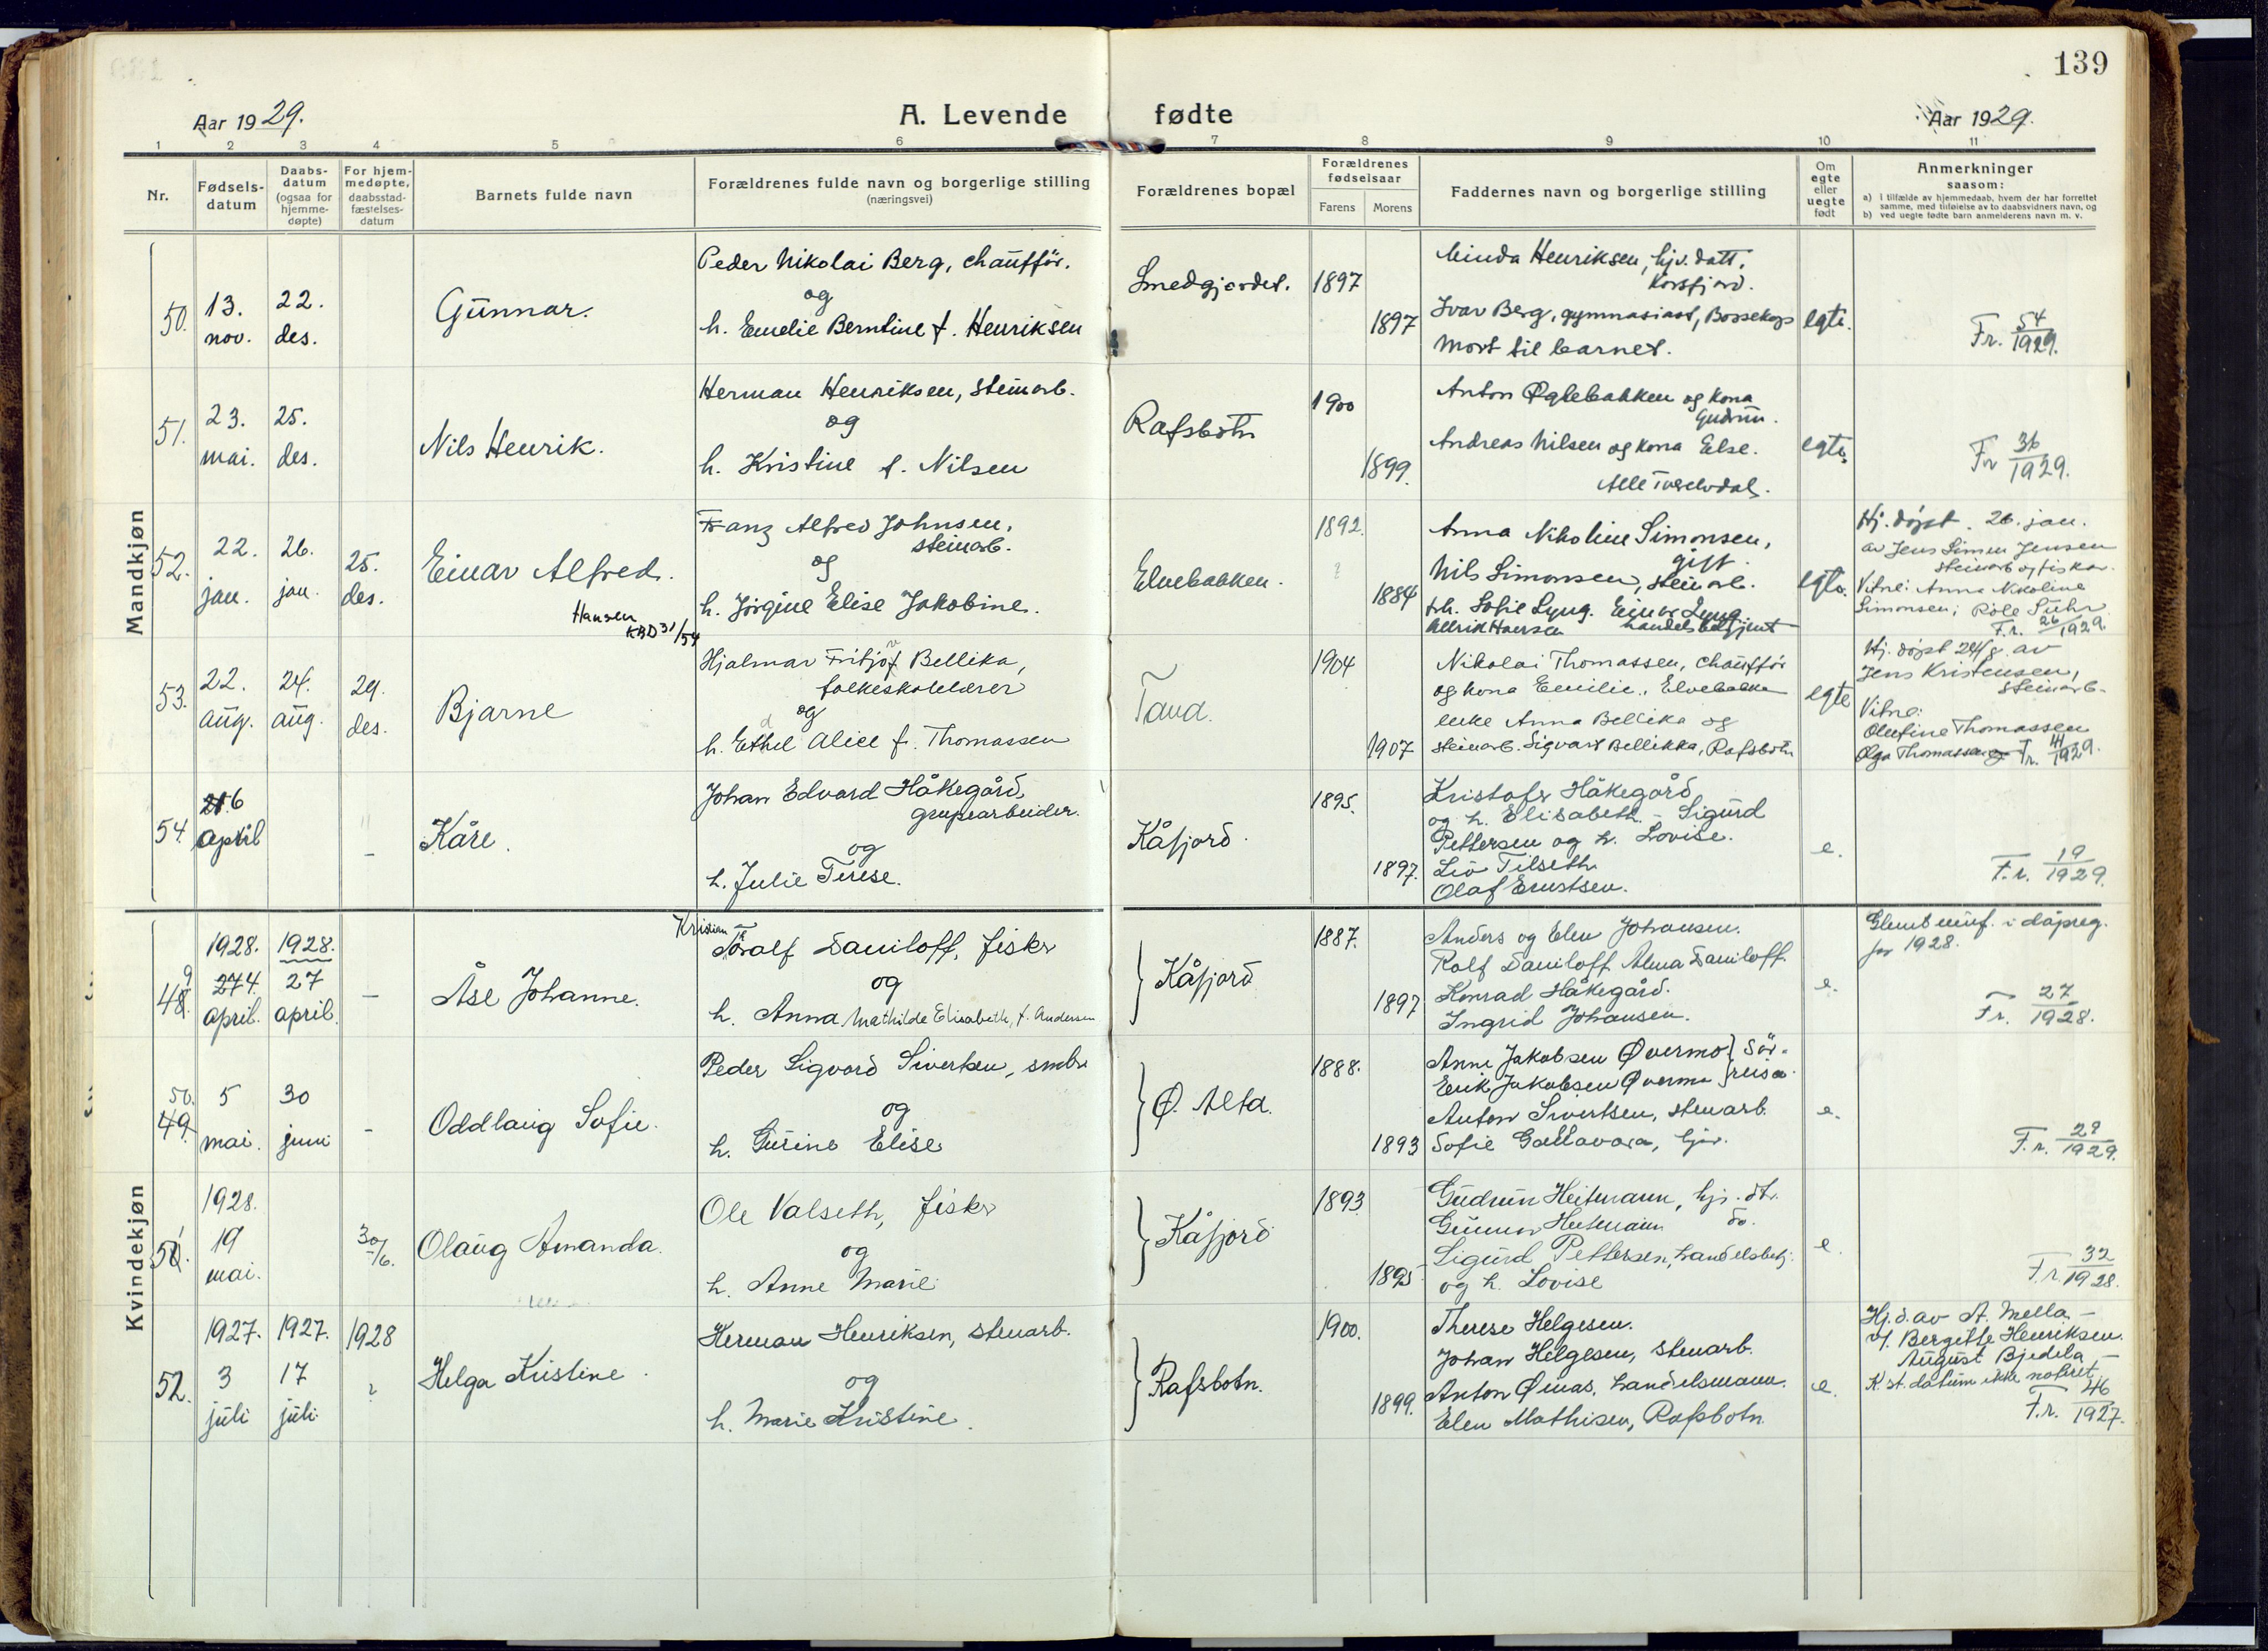 139
Aar 1929.
A. Levende fødte
Aar 1929.
1 2 3 4 5 6 7 8 9 10 11
Nr.
Fødsels-
datum
Daabs-
datum
(ogsaa for
hjemme-
døpte)
For hjem-
medøpte,
daabsstad-
fæstelses-
datum
Barnets fulde navn
Forældrenes fulde navn og borgerlige stilling
(næringsvei)
Forældrenes bopæl
Forældrenes
fødselsaar
Farens Morens
Faddernes navn og borgerlige stilling
Om
egte
eller
uegte
født
Anmerkninger
saasom:
a) i tilfælde av hjemmedaab, hvem der har forrettet
samme, med tilføielse av to daabsvidners navn, og
b) ved uegte fødte barn anmelderens navn m. v.
Mandkjøn
50.
13.
nov.
22.
des.
Gunnar.
Peder Nikolai Berg, chauffør.
og
h. Emelie Berntine f. Henriksen
Smedgjordet.
1897
1897
Minda Henriksen, hjv. datt.
Korsfjord.
Ivar Berg, gymnasiast, Bossekop
Mort til barnet.
egte.
Fr. 54/1929.
51.
23.
mai.
25.
des.
Nils Henrik.
Herman Henriksen, steinarb.
og
h. Kristine f. Nilsen
Rafsbotn
1900
1899.
Anton Øglebakken og kona
Gudrun.
Andreas Nilsen og kona Else.
Alle Tverelvdal.
egte.
Fr 36/1929.
52.
22.
jan.
26.
jan.
25.
des.
Einar Alfred.
Hansen
KBD 31/54
Franz Alfred Johnsen,
steinarb.
og
h. Jørgine Elise Jakobine.
Elvebakken.
1892.
1884
Anna Nikoline Simonsen,
gift.
Nils Simonsen, steinarb.
frk. Sofie Lyng. Einar Lyng
handelsbetjent
egte.
Hj. døpt. 26. jan.
av Jens Simon Jensen
steinarb og fisker.
Vitne: Anna Nikoline
Simonsen;
F.r. 26/1929.
53.
22.
aug.
24.
aug.
29.
des.
Bjarne
Hjalmar Fritjof Bellika,
folkeskolelærer
og
h. Ethel Alice f. Thomassen
Tana.
1904
1907
Nikolai Thomassen, chauffør
og kona Emilie, Elvebakke
enke Anna Bellika og
steinarb. Sigvart Bellikka, Rafsbotn
egte
Hj. døpt 24/8. av
Jens Kristensen,
steinarb.
Vitne:
Olufine Thomassen
Olga Thomassen Fr. 41/1929.
54.
26
april
–
Kåre.
Johan Edvard Håkegård,
grupearbeider.
og
h. Julie Terese.
Kåfjord.
1895.
1897.
Kristofer Håkegård
og h. Elisabeth. – Sigurd
Pettersen og h. Lovise.
Liv Tilseth
Olaf Ernstsen.
e.
F.r. 19/1929.
Kvindekjøn
49
1928.
274.
april.
1928.
27
april.
–
Åse Johanne.
Kristian
Toralf Daniloff, fisker
og
h. Anna Mathilde Elisabeth, f. Andersen
Kåfjord
1887.
1897
Anders og Elen Johansen.
Rolf Daniloff. Alma Daniloff.
Konrad Håkegård.
Ingrid Johansen.
e.
Glemt innf. i dåpreg.
for 1928.
F.r. 27/1928.
50.
49.
5
mai.
30
juni
–
Oddlaug Sofie.
Peder Sigvard Sivertsen, småbr
og
h. Gurine Elise
Ø. Alta.
1888.
1893
Anne Jakobsen Øvermo } Sør-
Erik Jakobsen Øvermo } reisa.
Anton Sivertsen, stenarb.
Sofie Gallavara, hjv.
e.
F.r. 29/1929.
51
1928.
19
mai.
30/6.
Olaug Amanda.
Ole Valseth, fisker
og
h. Anne Marie
Kåfjord
1893
1895
Gudrun Heitmann, hj. dt.
Gunnar Heitmann do.
Sigurd Pettersen, handelsbetj.
og h. Lovise
e.
F.r. 32/1928.
52.
1927.
3
juli
1927.
17
juli
1928
?
Helga Kristine.
Herman Henriksen, stenarb.
og
h. Marie Kristine.
Rafsbotn.
1900.
1899.
Therese Helgesen.
Johan Helgesen, stenarb.
Anton Ømas, handelsmann.
Elen Mathisen, Rafsbotn.
e.
Hj. d. av A. Mella –
v/ Bergitte Henriksen.
August Bjedela –
K. st. datum ikke notert
F.r. 46/1927.